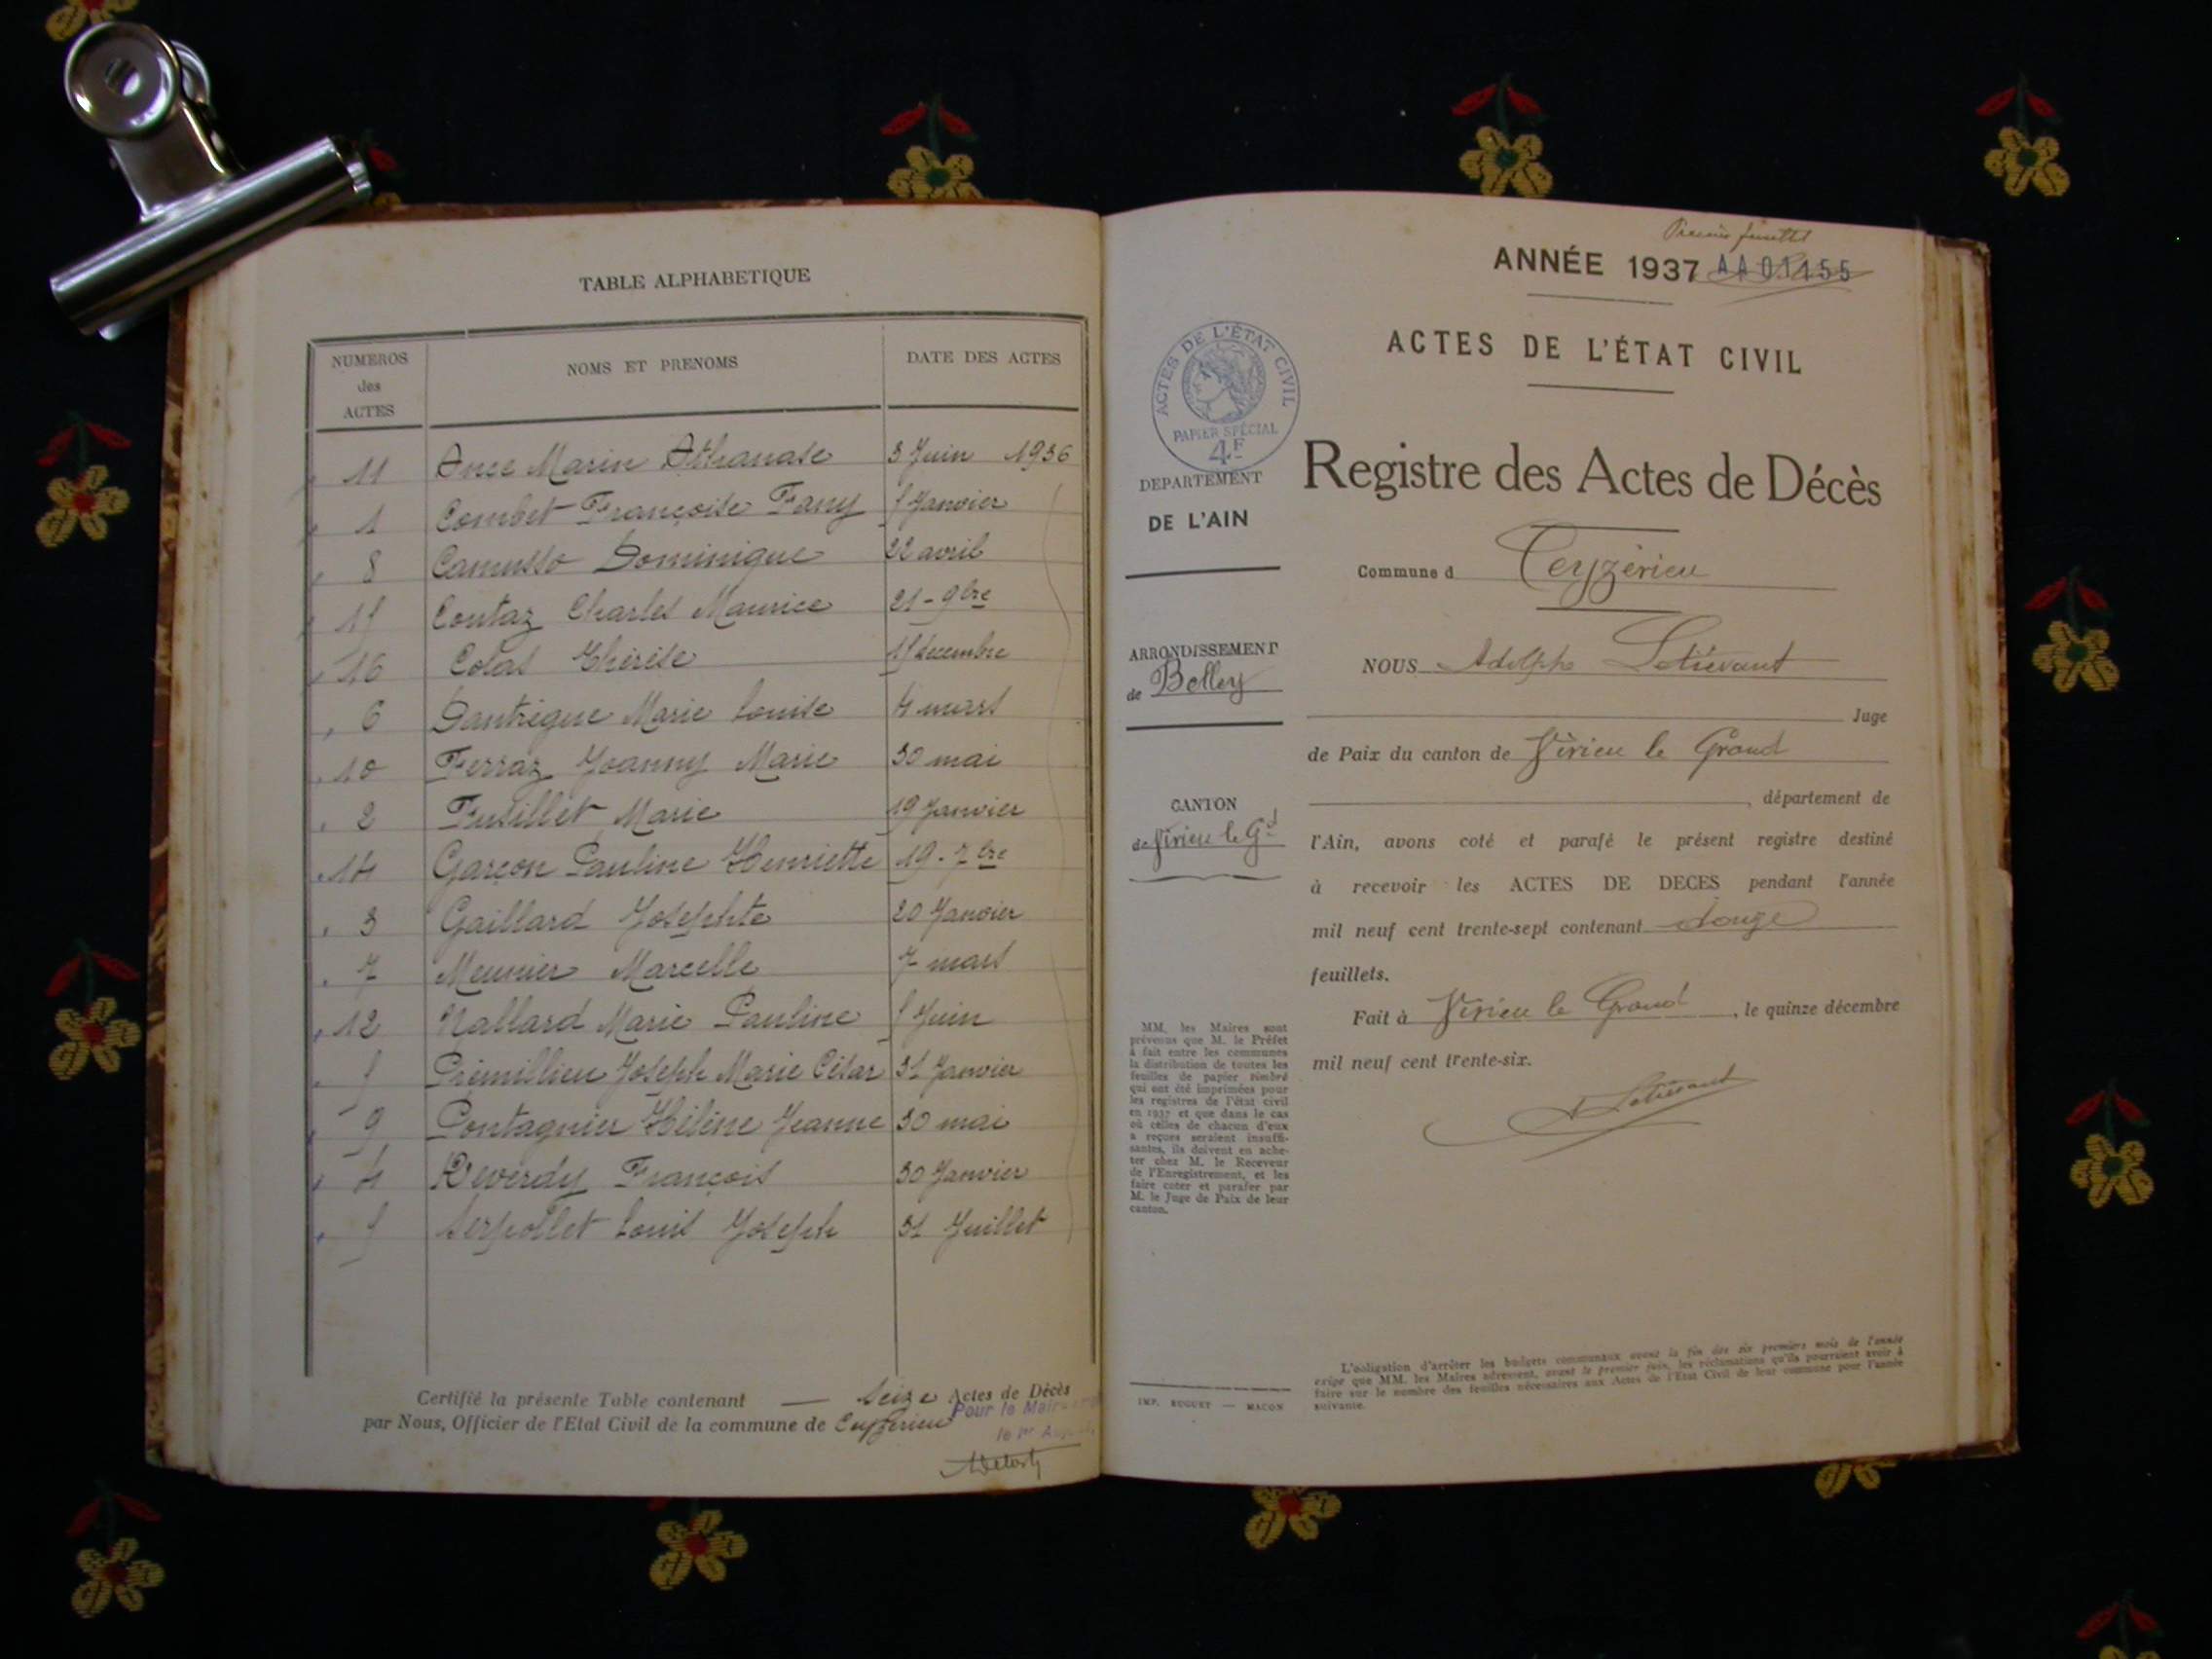 TABLE ALPHABETIQUE
NUMEROS
des
ACTES
NOMS ET PRENOMS
DATE DES ACTES
11 Ance Marin Athanase 3 Juin 1936
1 Combet Françoise Fany 5 Janvier
8 Camusso Dominique 22 avril
15 Contaz Charles Maurice 21 - 9bre
16 Colas Thérèse 15 decembre
6 Dantrègue Marie Louise 4 mars
10 Ferraz Joanny Marie 30 mai
2 Fusillet Marie 19 Janvier
14 Garçon Pauline Henriette 19 - 7bre
3 Gaillard Josephte 20 Janvier
7 Meunier Marcelle 7 mars
12 Nallard Marie Pauline 5 Juin
5 Prémillieu Joseph Marie César 31 Janvier
9 Pontagnier Hélène Jeanne 30 mai
4 Reverdy François 30 Janvier
Serpollet Louis Joseph 31 Juillet
Certifié la présente Table contenant Seize Actes de Décès
par Nous, Officier de l'Etat Civil de la commune de Ceyzérieu
Pour le Maire
le 1er
Premier feuillet
ANNÉE 1937 AA01155
ACTES DE L'ÉTAT CIVIL
ACTES DE L'ÉTAT CIVIL
PAPIER SPÉCIAL
4F
DEPARTEMENT
DE L'AIN
ARRONDISSEMENT
de Belley
CANTON
de Virieu le Gd
MM. les Maires sont
prévenus que M. le Préfet
à fait entre les communes
la distribution de toutes les
feuilles de papier timbré
qui ont été imprimées pour
les registres de l'état civil
en 1937 et que dans le cas
où celles de chacun d'eux
a reçues seraient insuffi-
santes, ils doivent en ache-
ter chez M. le Receveur
de l'Enregistrement, et les
faire coter et parafer par
M. le Juge de Paix de leur
canton.
IMP. BUGUET — MACON
Registre des Actes de Décès
Commune d Ceyzérieu
NOUS Adolphe Letiévant
Juge
de Paix du canton de Virieu le Grand
, département de
l'Ain, avons coté et parafé le présent registre destiné
à recevoir les ACTES DE DECES pendant l'année
mil neuf cent trente-sept contenant douze
feuillets.
Fait à Virieu le Grand, le quinze décembre
mil neuf cent trente-six.
A Letiévant
L'obligation d'arrêter les budgets communaux avant la fin des six premiers mois de l'année
exige que MM. les Maires adressent, avant le premier juin, les réclamations qu'ils pourraient avoir à
faire sur le nombre des feuilles nécessaires aux Actes de l'Etat Civil de leur commune pour l'année
suivante.